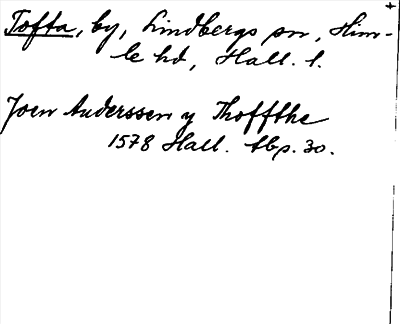 Tofta, by, Lindbergs sn, Him-
le hd, Hall. l.
Joen Anderssen y Thoffthe
1578 Hall. tbp. 30.